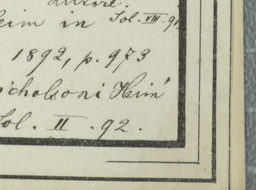 autore.
eim in Sol. VIII. 91
1892, p. 973
icholsoni Heim
Sol. II. 92.